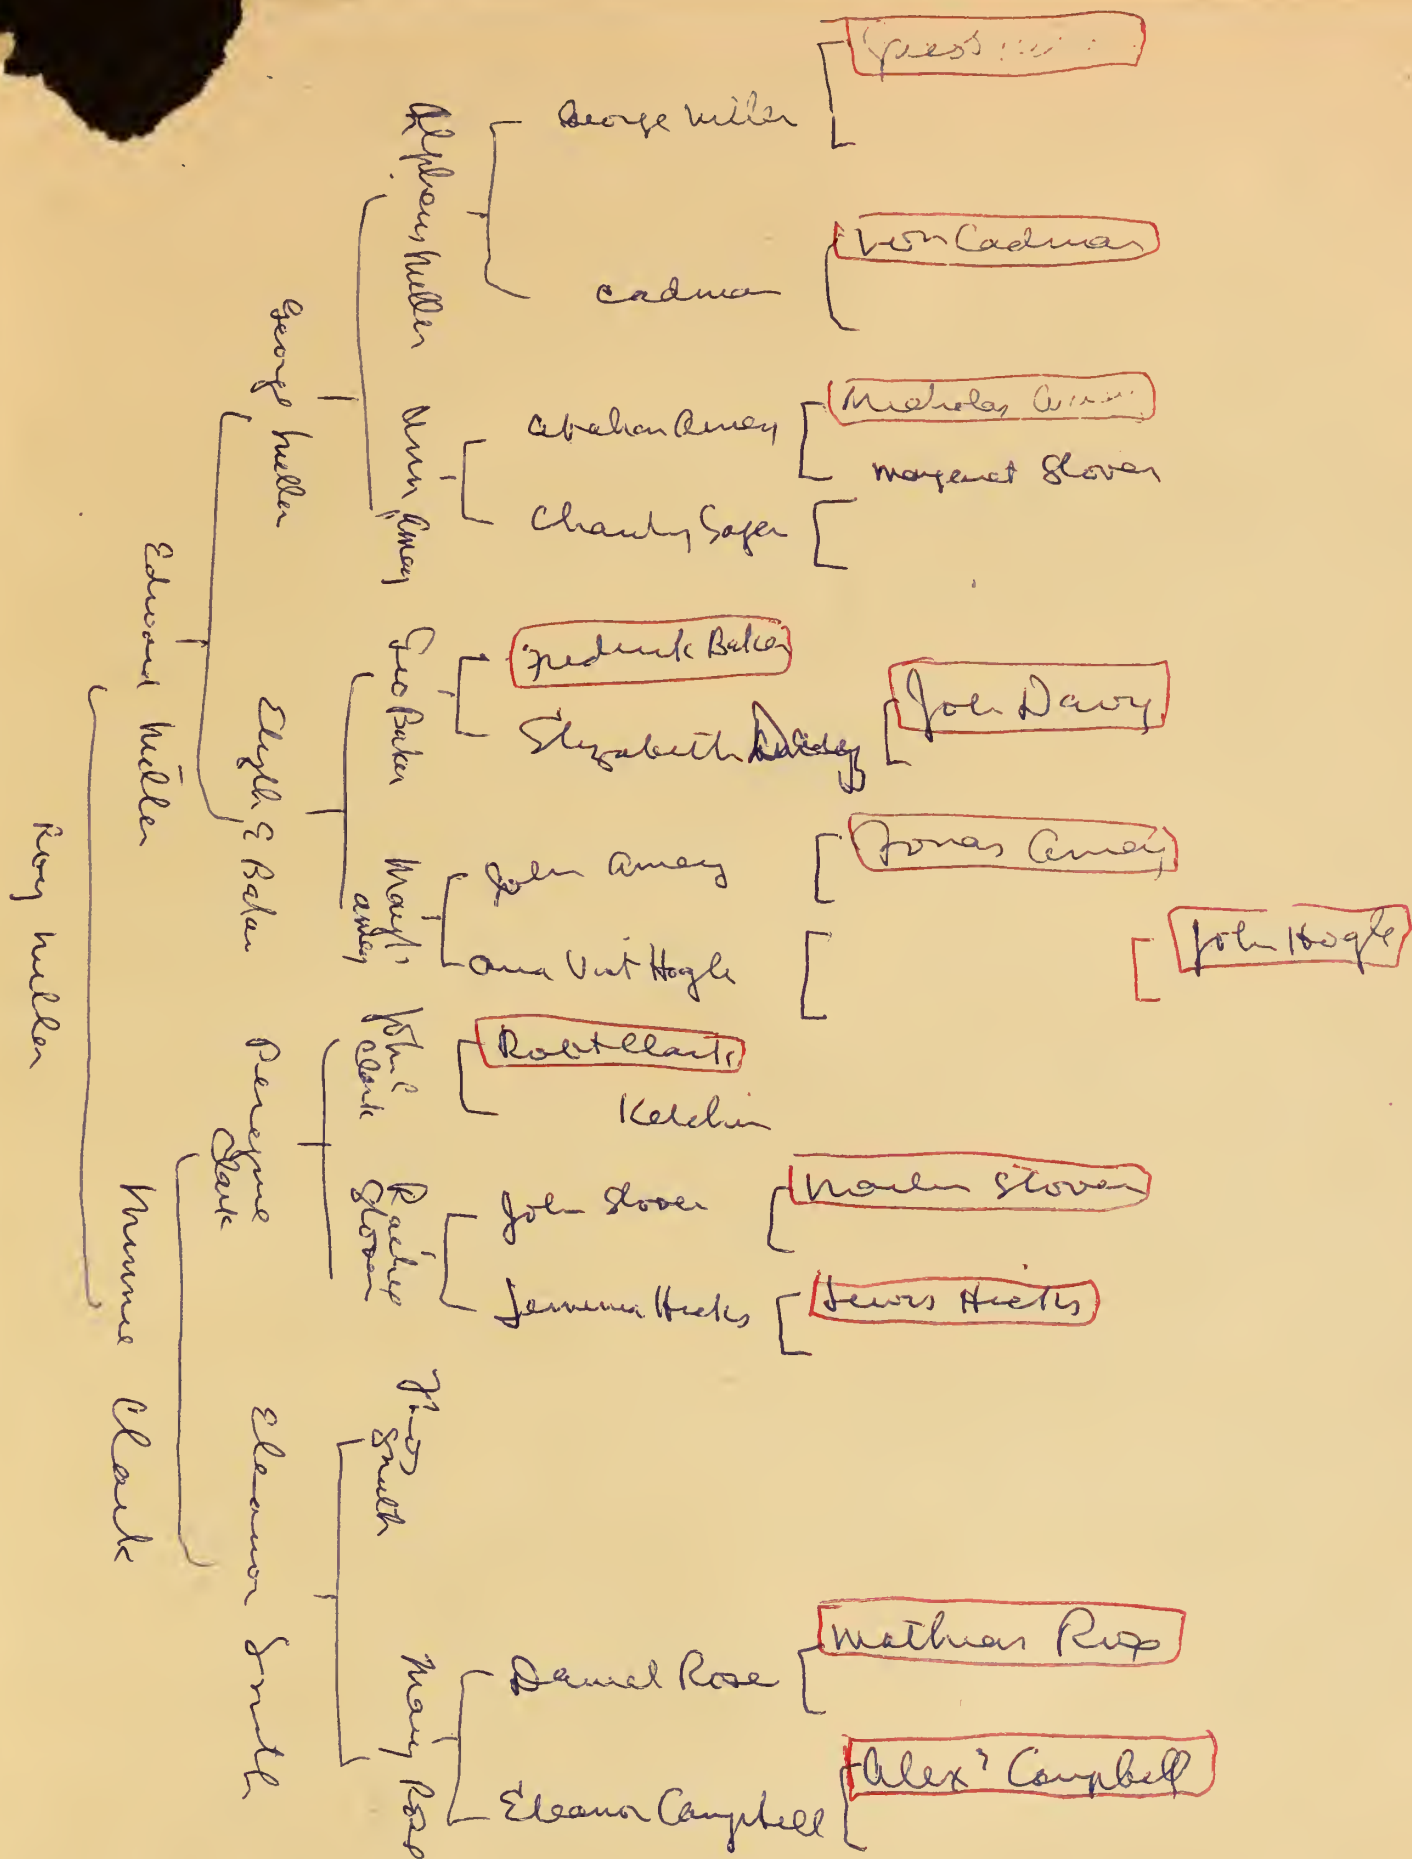 Roy Miller
Edward Miller
Minnie Clark
George Miller
E Baker
Clark
Eleanor Smith
Miller
Ann Amey
Geo Baker
Amey
John Clark
Rachel Slover
Smith
Mary Rose
George Miller
Cadman
Abraham Amey
Charity
Frederick Baker
Elizabeth
John Amey
Hogle
Robt Clark
John Slover
Jemima Hicks
Daniel Rose
Eleanor Campbell
Cadman
Nicholas
Margaret Slover
John Davy
Jonas Amey
John Hogle
Slover
Lewis Hicks
Mathias Rose
Alexr Campbell